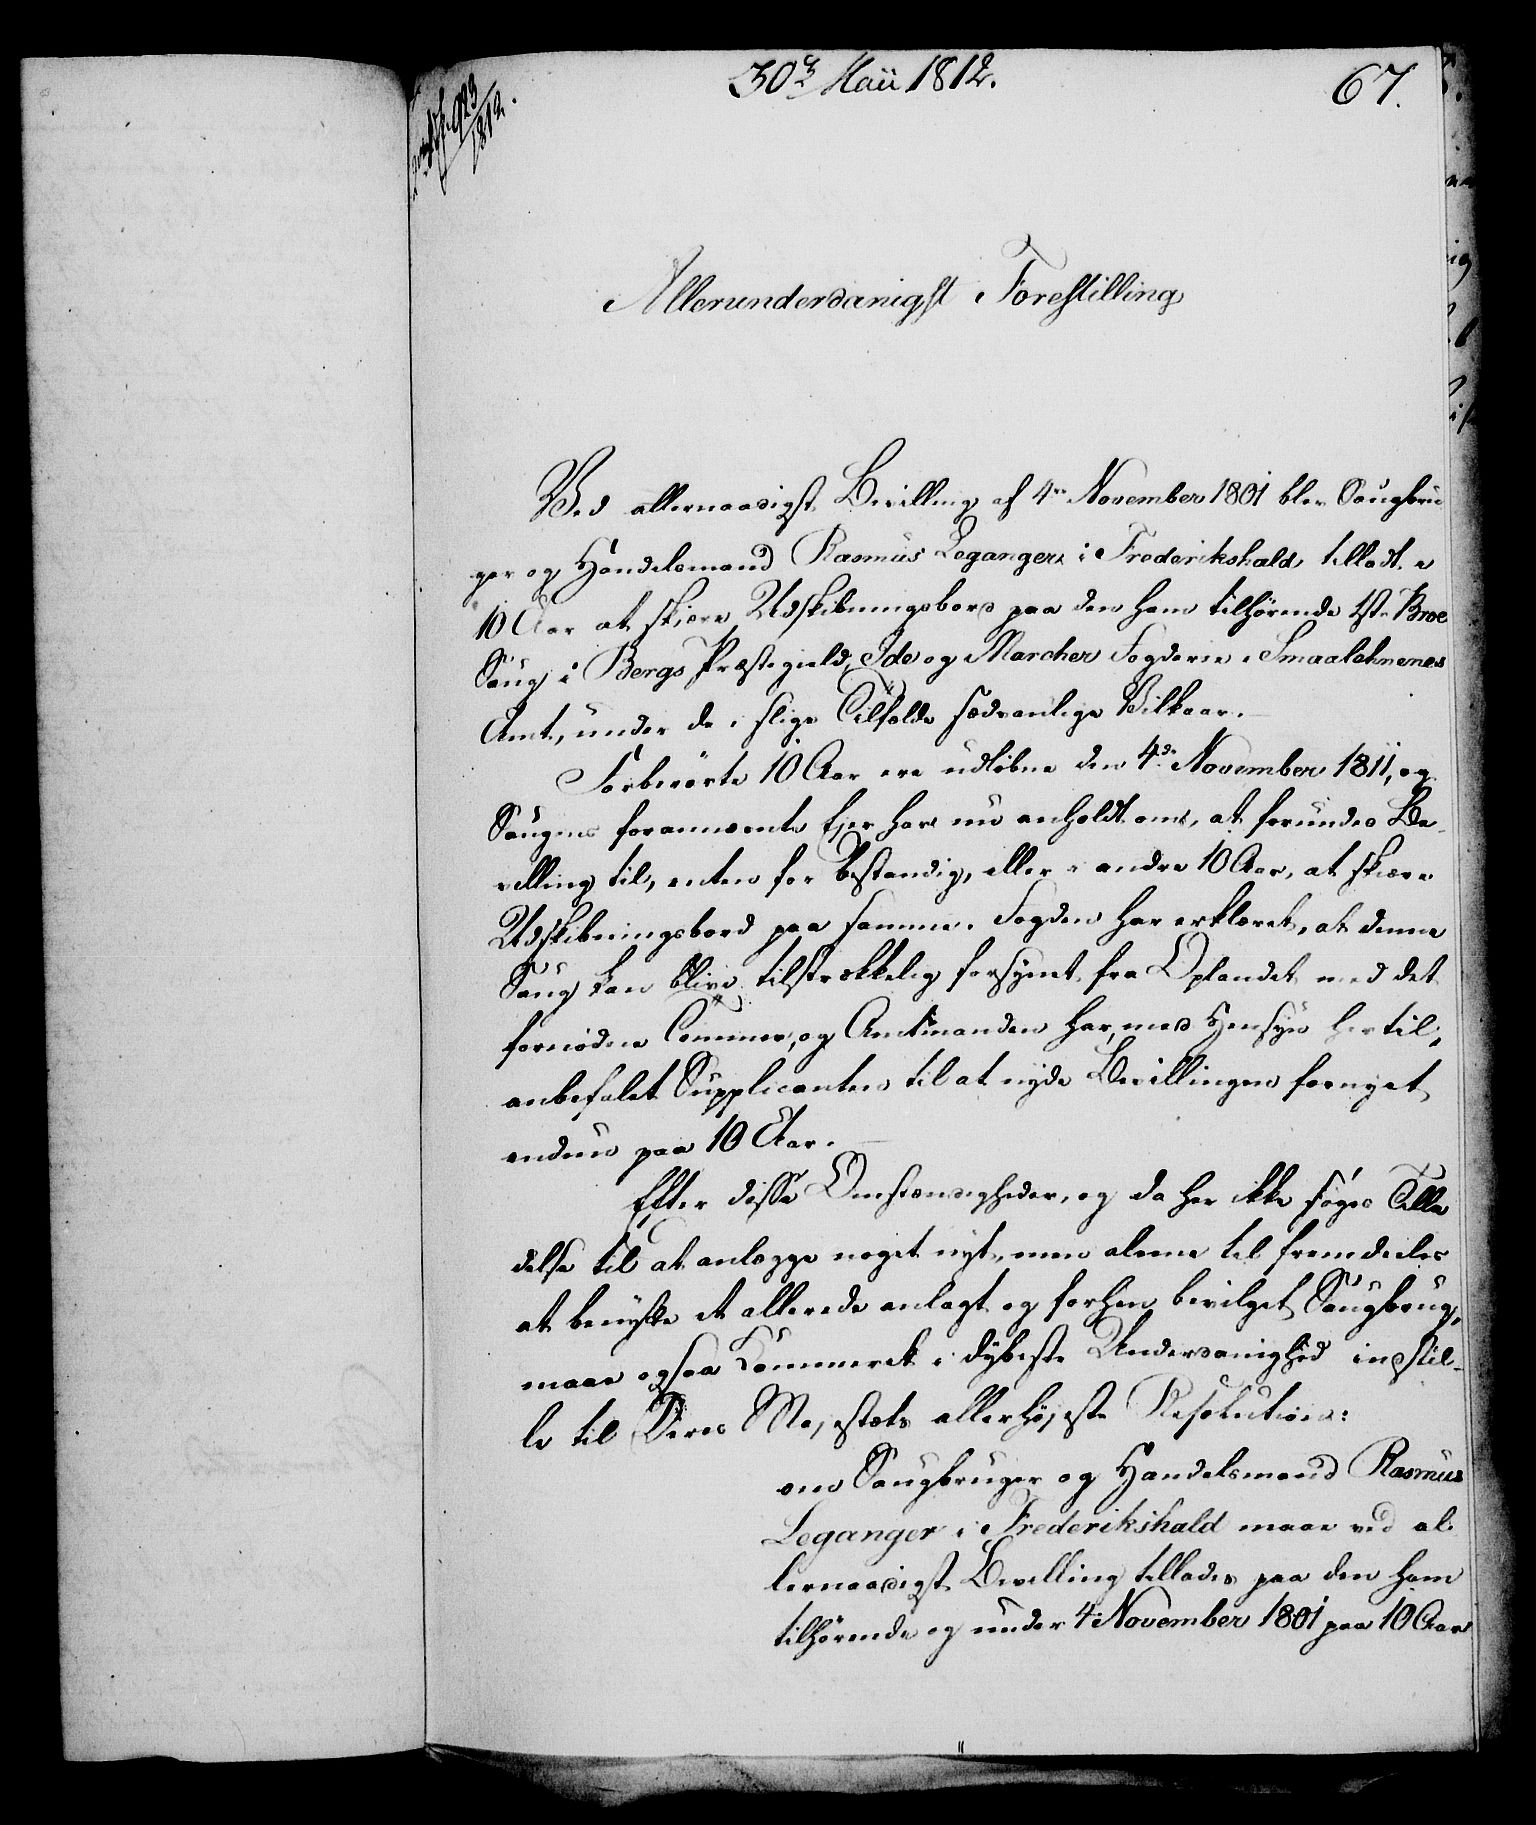 30te Maii 1812.
67.
923/1812.
Allerunderdanigst Forestilling
Ved allernaadigst Bevilling af 4de November 1801 blev Saugbru-
ger og Handelsmand Rasmus Leganger i Frederikshald tilladt i
10 Aar at skiære Udskibningsbord paa den ham tilhörende Broe
Saug i Bergs Præstegield, Ide og Marcher Fogderie i Smaalehnenes
Amt, under de i slige Tilfælde sædvanlige Vilkaar.
Forberörte 10 Aar ere udlöbne den 4de November 1811, og
Saugens forannævnte Ejer har nu anholdt om, at forundes Be-
villing til, enten for bestandig, eller i andre 10 Aar, at skiære
Udskibningsbord paa samme. Fogden har erklæret, at denne
Saug kan blive tilstrækkelig forsynet fra Oplandet med det
fornödne Tömmer, og Amtmanden har, med Hensyn hertil,
anbefalet Supplicanten til at nyde Bevillingen fornyet
endnu paa 10 Aar.
Efter disse Omstændigheder, og da her ikke söges Tilla
delse til at anlægge noget nyt, men alene til fremdeeles
at benytte et allerede anlagt og forhen bevilget Saugbrug,
maae ogsaa Kammeret i dybeste Underdanighed indstil-
le til Deres Majestæts allerhöjeste Resolution:
om Saugbruger og Handelsmand Rasmus
Leganger i Frederikshald maae ved al-
lernaadigst Bevilling tillades paa den ham
tilhörende og under 4 November 1801 paa 10 Aar